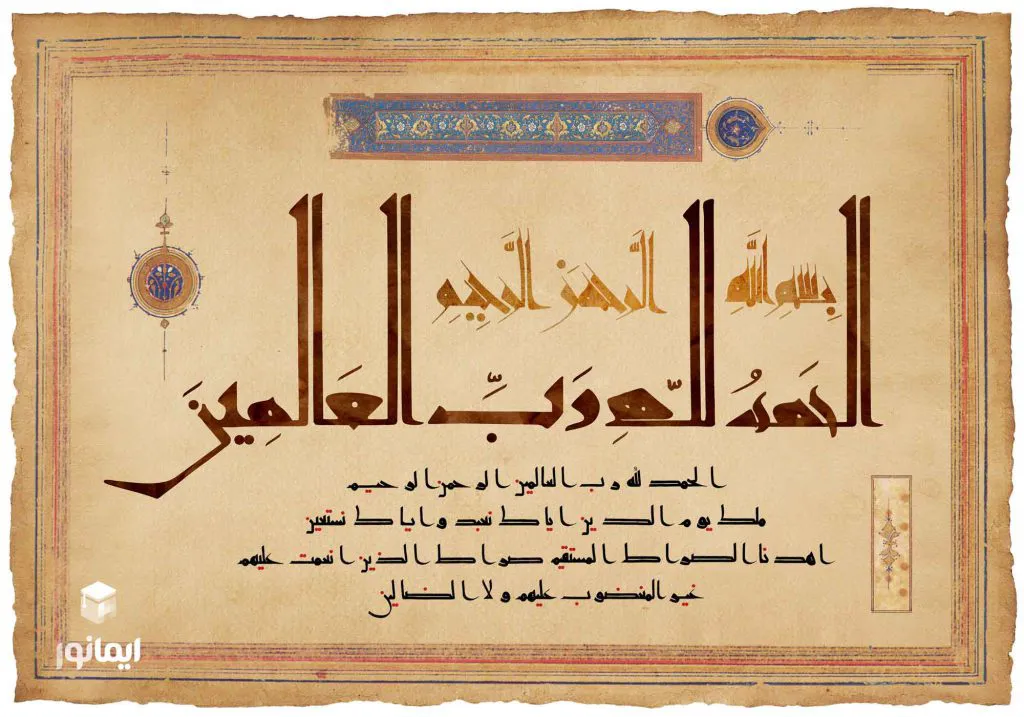 بِسْمِ اللَّهِ الرَّحْمَنِ الرَّحِيمِ
الحَمدُ للّهِ رَبِّ العَالَمِينَ
الحمد لله رب العالمين الرحمن الرحيم
ملك يوم الدين اياك نعبد و اياك نستعين
اهدنا الصراط المستقيم صراط الذين انعمت عليهم
غير المغضوب عليهم و لا الضالين
ایمانور